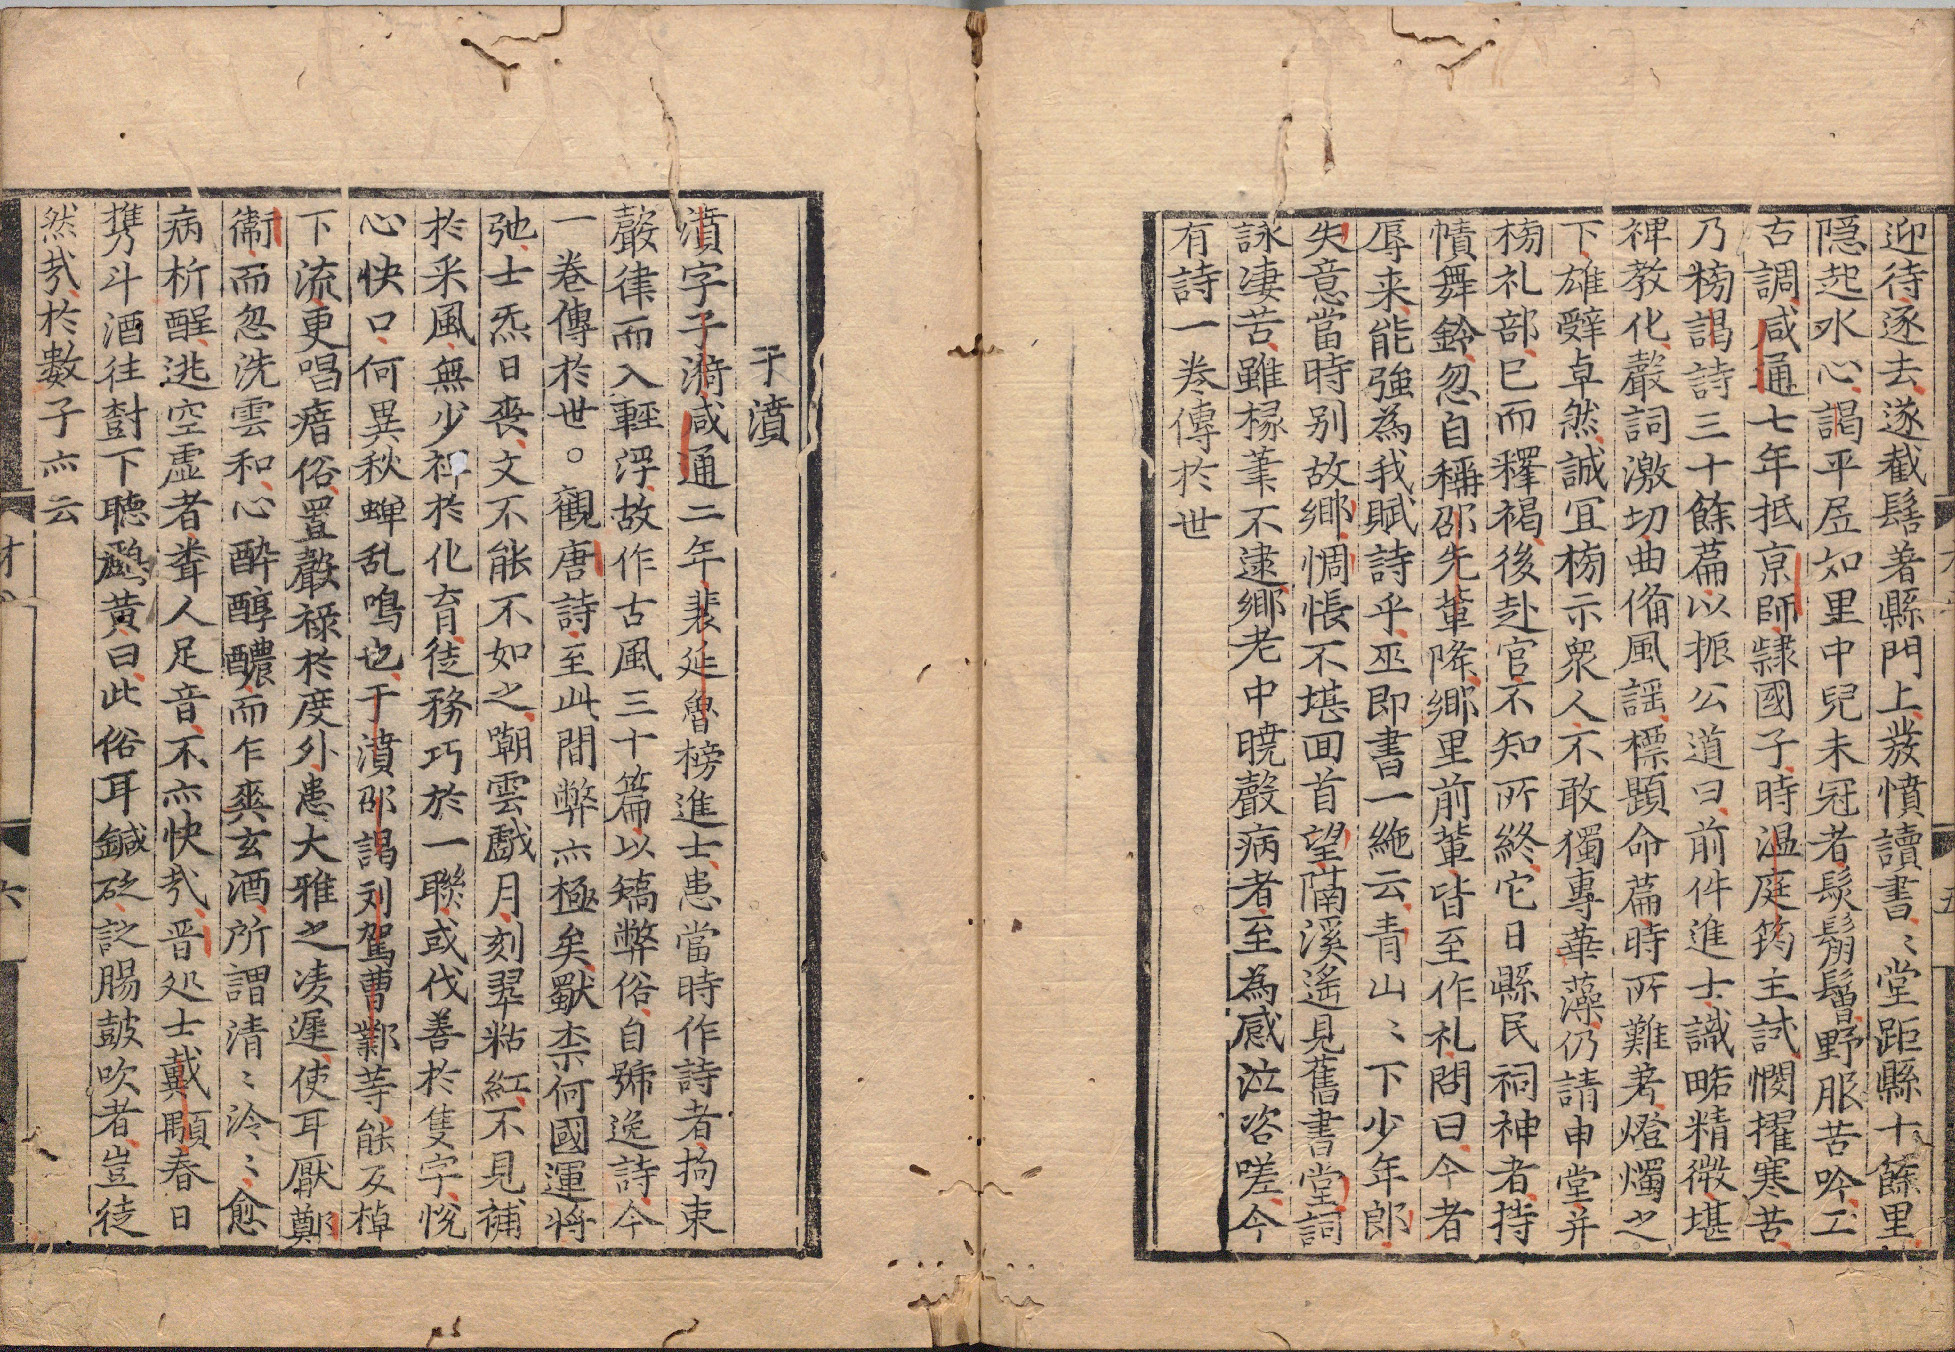 迎待逐去遂截髻著縣門上發憤讀書〻堂距縣十餘里
隱起水心謁平居如里中兒未冠者髮鬅鬙野服苦吟工
古調咸通七年抵京師隸國子時温庭筠主試憫擢寒苦
乃榜謁詩三十餘篇以振公道曰前件進士識略精微堪
裨教化聲詞激切曲俻風謡標題命篇時所難著燈燭之
下雄辞卓然誠冝榜示衆人不敢獨專華藻仍請申堂并
榜礼部已而釋褐後赴官不知所終它日縣民祠神者持
幘舞鈴忽自稱邵先軰降鄉里前軰皆至作礼問曰今者
辱来能強為我賦詩乎巫即書一絶云青山〻下少年郎
失意當時别故鄉惆悵不堪回首望隔溪遙見舊書堂詞
詠凄苦雖椽筆不逮鄉老中曉聲病者至為感泣咨嗟今
有詩一卷傳於世
于濆
濆字子漪咸通二年裴延魯榜進士患當時作詩者拘束
聲律而入輕浮故作古風三十篇以矯弊俗自號逸詩今
一卷傳於世○觀唐詩至此間弊亦極矣獸柰何國運将
弛士炁日䘮文不能不如之嘲雲戲月刻翠粘紅不見補
於采風無少裨於化育徒務巧於一聯或伐善於隻字恱
心快口何異秋蟬乱鳴也于濆邵謁刘駕曹鄴等能反棹
下流更唱瘖俗置聲禄於度外患大雅之凌遲使耳厭鄭
衛而忽洗雲和心醉醇醲而乍爽玄酒所謂清〻泠〻愈
病析酲逃空虚者聋人足音不亦快㢤晉処士戴顒春日
携斗酒往樹下聽鸝黄曰此俗耳鍼砭詩腸鼓吹者豈徒
然㢤於數子亦云